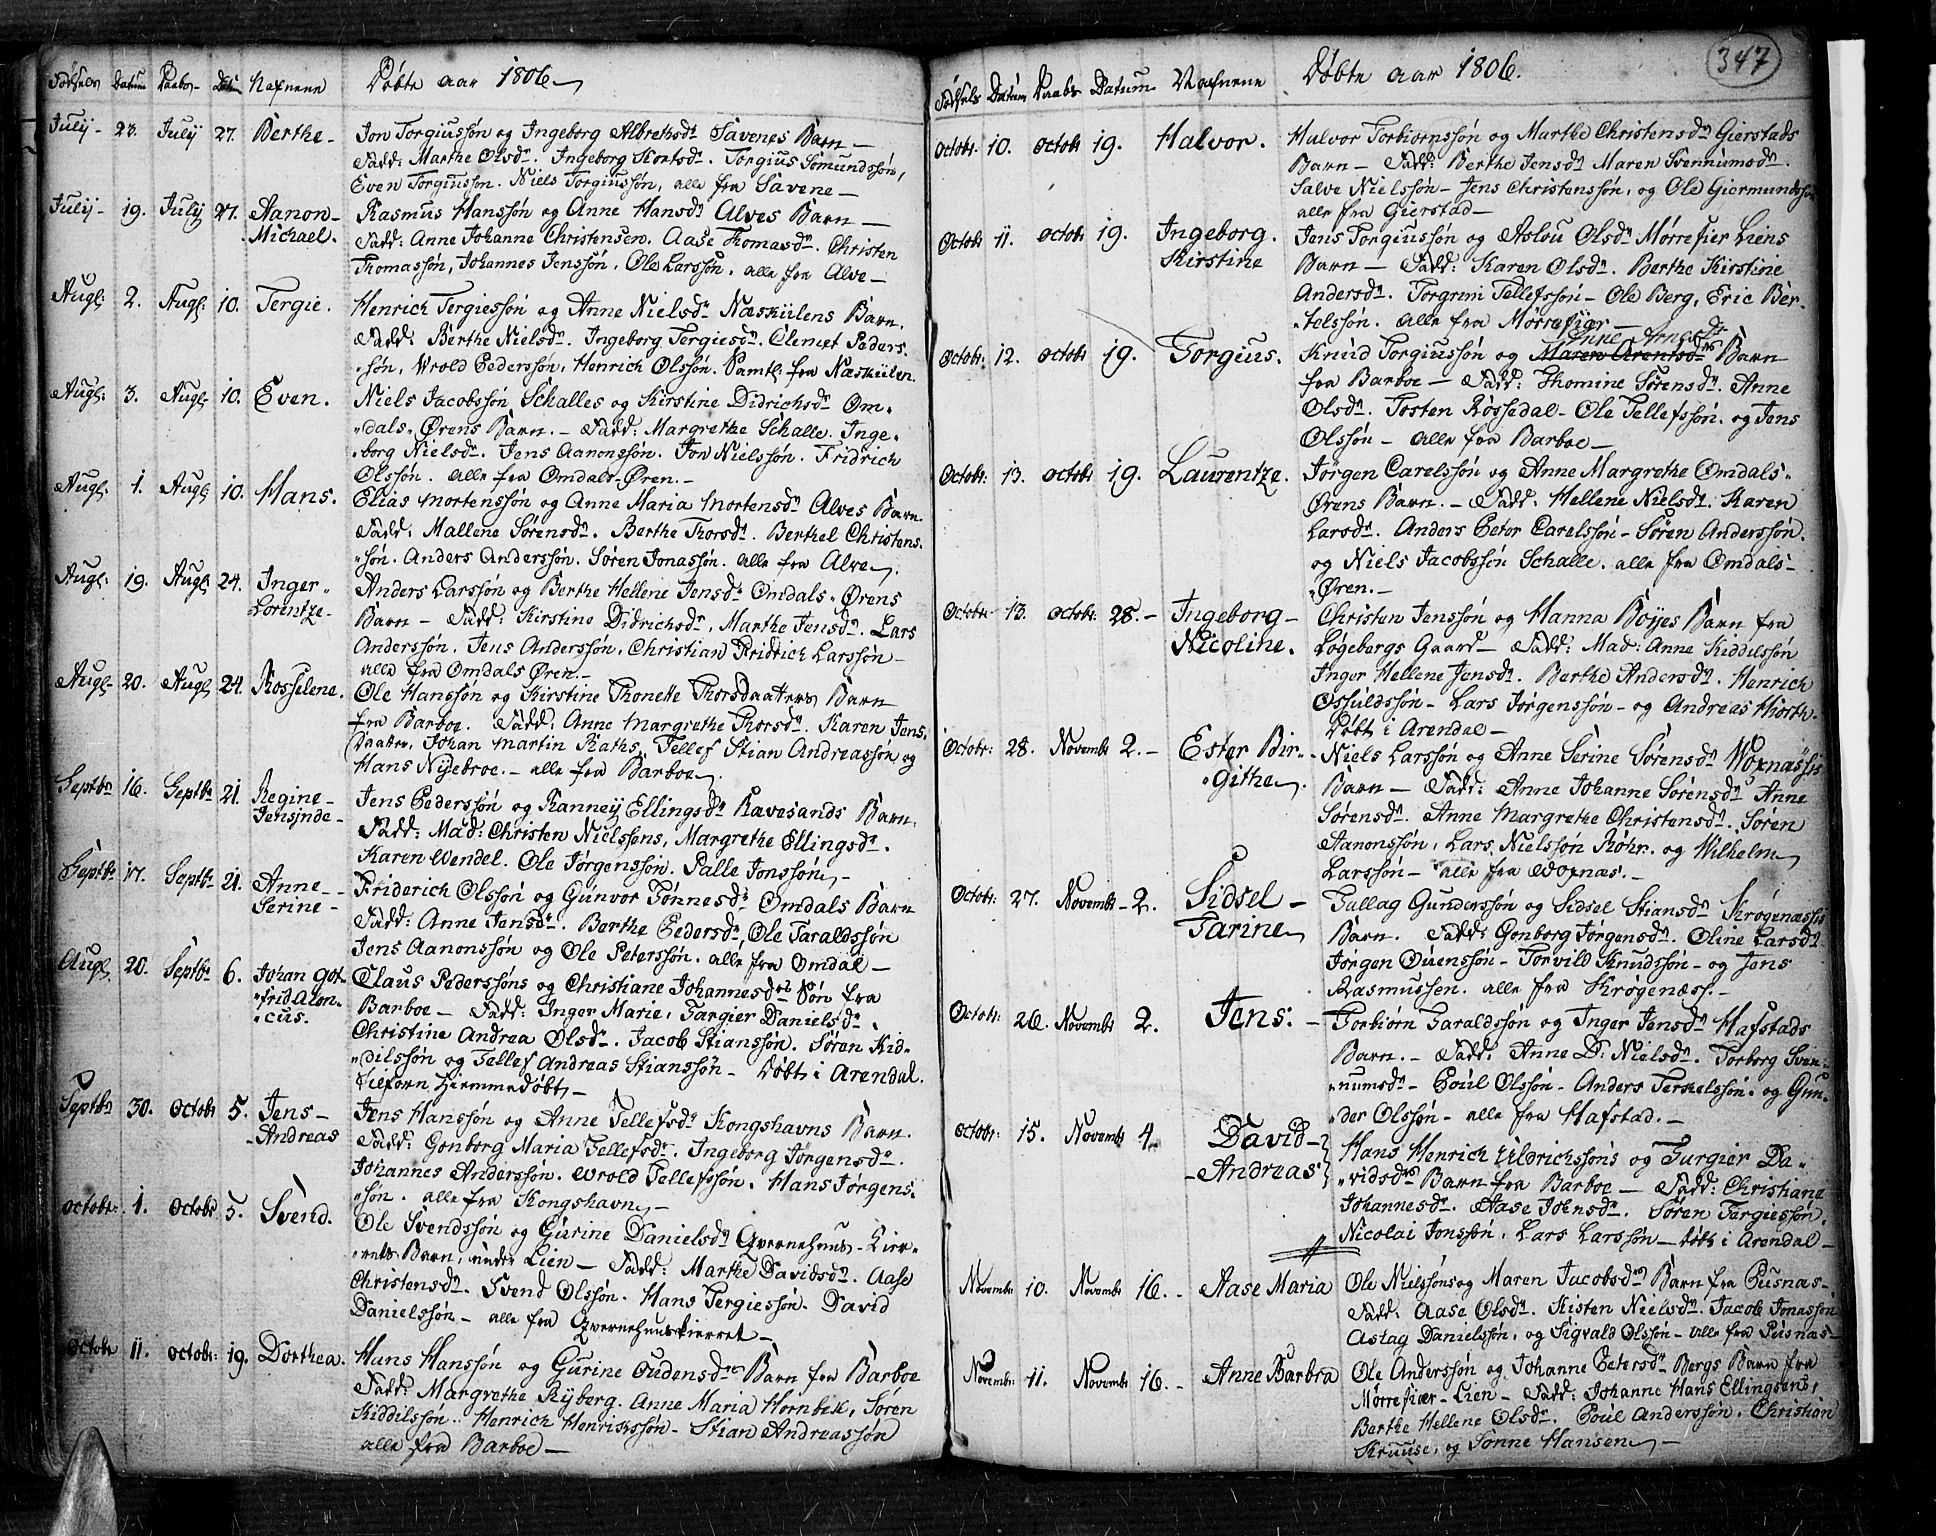 Fødsels Datum Daabs- Datum Nafnene Døbte aar 1806
July- 23. July 27. Berthe- Jon Torgiussøn og Ingeborg Albrethsdr Savenes Barn-
Fadd: Marthe Olsdr. Ingeborg Kortsdr. Torgius Somundssøn,
Even Torgiussøn. Niels Torgiussøn, alle fra Savene-
July- 19. July 27. Aanon- Rasmus Hanssøn og Anne Hansdr Alves Barn-
Michael. Fadd: Anne Johanne Christensen. Aase Thomasdr. Christen
Thomassøn, Johannes Jenssøn. Ole Larssøn. alle fra Alve-
Augl: 2. Augl: 10. Tergie. Henrich Tergiessøn og Anne Nielsdr Næskiilens Barn.
Fadd: Berthe Nielsdr. Ingeborg Tergiesdr. Clemet Peders
søn, Wrold Pederssøn, Henrich Olssøn. Samtl: fra Næskiilen.
Augl: 3. Augl: 10. Even. Niels Jacobssøn Schalles og Kirstine Didrichsdr Om-
dals Ørens Barn.- Fadd: Margrethe Schalle. Inge-
borg Nielsdr. Jens Aanonssøn. Jon Nielssøn. Fridrich
Olssøn. alle fra Omdals-Øren.-
Augl: 1. Augl: 10. Hans. Elias Mortenssøn og Anne Maria Mortensdr Alves Barn.
Fadd: Mallene Sørensdr. Berthe Thorsdr. Berthel Christens
søn. Anders Anderssøn. Søren Jonassøn. alle fra Alve.
Augl: 19. Augl: 24. Inger- Anders Larssøn og Berthe Hellene Jensdr Omdals Ørens
Lorentze- Barn- Fadd: Kirstine Didrichsdr, Marthe Jensdr. Lars
Anderssøn. Jens Anderssøn, Christian Fridrich Larssøn-
alle fra Omdals Øren.-
Augl- 20. Augl: 24. Rosselene. Ole Hanssøn og Kirstine Thonette Thorsdaatters Barn
fra Barboe. Fadd: Anne Margrethe Thorsdr. Karen Jens
Daatter, Johan Martin Raths, Tellef Stian Andreassøn og
Hans Nyebroe.- alle fra Barboe.
Septbr 16. Septbr 21. Regine- Jens Pederssøn og Ranney Ellingsdr Ravesands Barn.
Jensine- Fadd: Mad: Christen Nielssøns, Margrethe Ellingsdr.
Karen Wendel. Ole Jørgenssøn. Palle Jonssøn.-
Septbr 17. Septbr 21. Anne- Friderich Olssøn og Gunvor Tønnesdr Omdals Barn
Serine- Fadd: Anne Jensdr. Berthe Pedersdr, Ole Taraldssøn
Jens Aanonssøn og Ole Peterssøn. alle fra Omdal-
Augl. 20. Septbr 6. Johan Got- Claus Pederssøns og Christiane Johannesdrs Søn fra
frid Barboe- Fadd: Inger Marie, Targier Danielsdr.
cus. Christine Andrea Olsdr. Jacob Stianssøn. Søren Kid-
dilssøn og Tellef Andreas Stianssøn- Døbt i Arendal.
tilforn Hiemmedøbt.
Septbr 30. Octobr 5. Jens- Jens Hanssøn og Anne Tellefsdr Kongshavns Barn.
-Andreas Fadd: Gonborg Maria Tellefsdr. Ingeborg Jørgensdr.
Johannes Anderssøn. Wrold Tellefssøn. Hans Jørgens
søn. alle fra Kongshavn.-
Octobr: 1. Octobr 5. Svend. Ole Svendssøn og Gurine Danielsdr Qvernehuus-Kier-
rets Barn, under Lien- Fadd: Marthe Davidsdr. Aase
Christensdr. Svend Olssøn. Hans Tergiessøn. David
Danielssøn- alle fra Qvernehuuskierret-
Octobr 11. Octobr: 19. Dorthea. Hans Hanssøn og Gurine Oudensdr Barn fra Barboe
Fadd: Margrethe Ryberg. Anne Maria Hornbek, Søren
Kiddilssøn. Henrich Henrichssøn- Stian Andreassøn
alle fra Barboe-
347
Fødsels Datum Daabs Datum Nafnene Døbte aar 1806.
Octobr. 10. Octobr 19. Halvor. Halvor Torbiørnssøn og Marthe Christensdr Gierstads
Barn- Fadd: Berthe Jensdr Maren Svennumsdr.
Salve Nielssøn- Jens Christenssøn, og Ole Giermundssøn
alle fra Gierstad-
Octobr 11. Octobr 19. Ingeborg. Jens Torgiussøn og Aslou Olsdr Mørrefier Liens
Kirstine Barn- Fadd: Karen Olsdr. Berthe Kirstine
Andersdr. Torgrim Tellefssøn- Ole Berg, Eric Ber-
telssøn. alle fra Mørrefier-
Anne Arnesdr
Octobr: 12. Octobr 19. Torgius. Knud Torgiussøn og Maren Arentsdrs Barn
fra Barboe- Fadd: Thomine Sørensdr. Anne
Olsdr. Tosten Røssedal- Ole Tellefssøn. og Jens
Olssøn- alle fra Barboe-
Octobr: 13. Octobr 19. Laurentze. Jørgen Carelssøn og Anne Margrethe Omdals-
Ørens Barn.- Fadd: Hellene Nielsdr. Karen
Larsdr. Anders Petor Carelssøn- Søren Anderssøn.
og Niels Jacobssøn Schalle. alle fra Omdals-
Øren.-
Octobr- 13. Octobr 28.- Ingeborg- Christen Jenssøn og Hanna Boyes Barn fra
Nicoline. Løgebergs Gaard- Fadd: Mad: Anne Kiddilssøn
Inger Hellene Jensdr. Berthe Andersdr. Henrich
Osfuldssøn- Lars Jørgenssøn- og Andreas Hiorth.
Døbt i Arendal-
Octobr: 28. Novembr 2.- Ester Bir- Niels Larssøn og Anne Serine Sørensdr Woxnæssis
githe. Barn- Fadd: Anne Johanne Sørensdr Anne
Sørensdr. Anne Margrethe Christensdr. Søren
Aanonssøn, Lars Nielssøn Røhr. og Wilhelm
Larssøn- alle fra Woxnæs.-
Octobr: 27. Novembr- 2. Sidsel- Tallag Gunderssøn og Sidsel Stiansdr Krøgenæssis
Tarine Barn. Fadd: Gonborg Jørgensdr. Oline Larsdr
Jørgen Ouenssøn- Torvild Knudssøn- og Jens
Rasmussen. alle fra Krøgenæss.-
Octobr: 26. Novembr 2. Jens.- Torbiørn Taraldssøn og Inger Jensdr Hafstads
Barn.- Fadd: Anne D: Nielsdr. Torborg Sven-
numsdr- Poul Olssøn- Anders Terkelssøn. og Gun-
der Olssøn- alle fra Hafstad.-
Octobr: 15. Novembr 4. David- Hans Henrich Uldrichssøns og Turgier Da-
-Andreas vidsdrs Barn fra Barboe- Fadd: Christiane
Johannesdr. Aase Johnsdr. Søren Targiessøn.
Nicolai Jonssøn. Lars Larssøn- døbt i Arendal-
Novembr 10. Novembr 16.- Aase Maria Ole Nielssøns og Maren Jacobsdrs Barn fra Pusnas-
Fadd: Aase Olsdr. Kisten Nielsdr. Jacob Jonassøn
Aslag Danielssøn, og Sigvald Olssøn- alle fra Pusnas-
Novembr: 11. Novembr 16.- Anne Barbra Ole Anderssøn og Johanne Petersdr Bergs Barn fra
Mørrefiær-Lien- Fadd: Johanne Hans Ellingsens,
Berthe Hellene Olsdr. Poul Anderssøn. Christian
Kruuse, og Sønne Hansen-